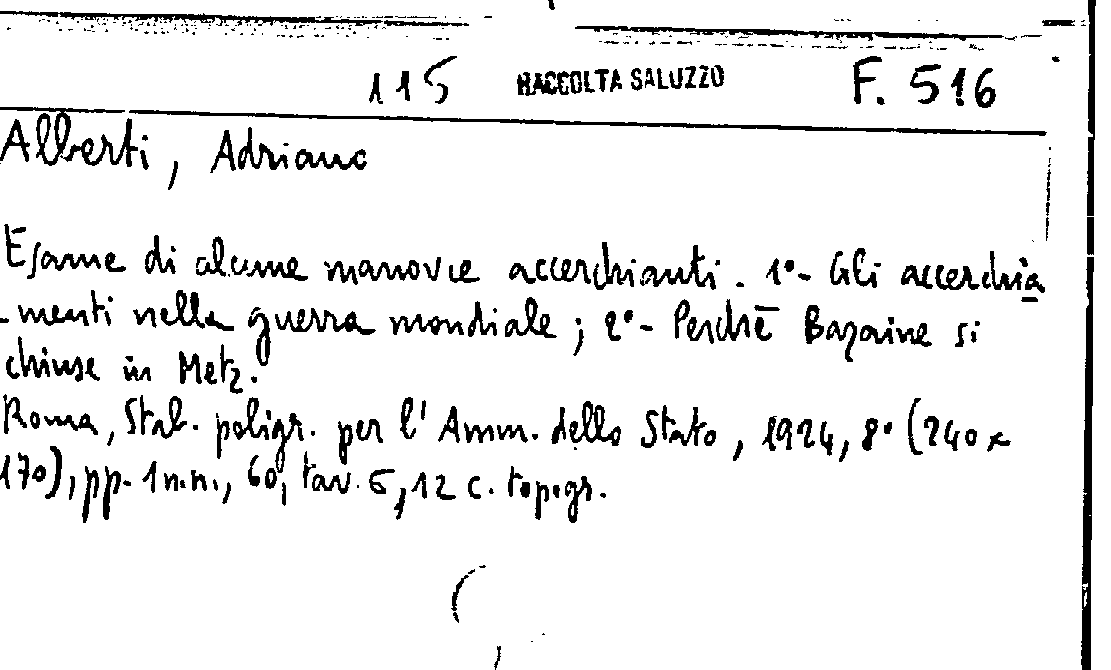 115 RACCOLTA SALUZZO F. 516
Alberti, Adriano
Esame di alcune manovre accerchianti. 1°- Gli accerchia
-menti nella guerra mondiale; 2°- Perchè Bazaine si
chiuse in Metz.
Roma, Stab. poligr. per l'Amm. dello Stato, 1924, 8° (240 x
170), pp. 1 n.n., 60, tav. 6, 12 c. topogr.